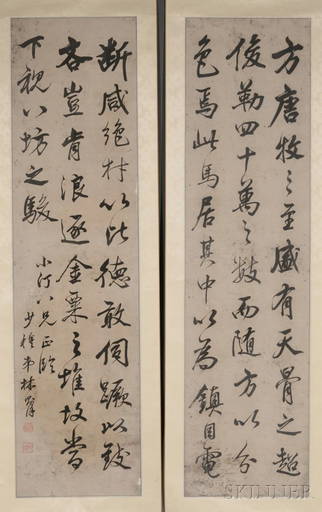 方唐牧之至盛有天骨之超
俊勒四十萬之數而隨方以分
色焉此馬居其中以為鎮目電
断咸絶材以比德敢伺蹶以致
吝豈肯浪逐金粟之堆故當
下視八坊之駿
小汀八兄正臨
少穆弟林則徐
SKINNER